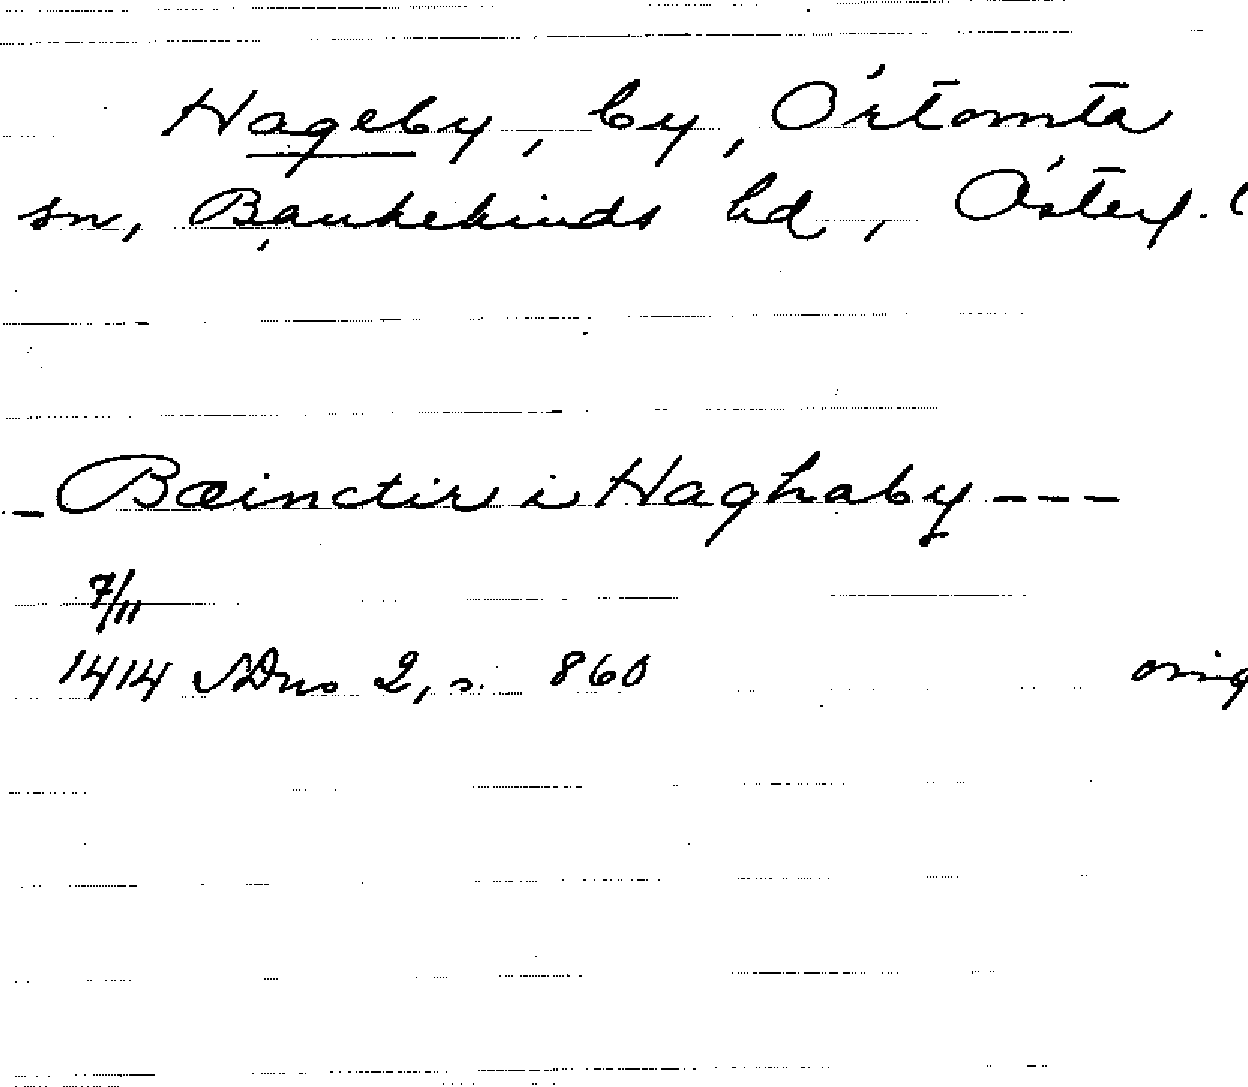 Hageby, by, Örtomta
sn, Bankekinds hd, Österg. (
- Bæinctir i Haghaby ---
7/11
1414 SDns 2, s. 860 orig